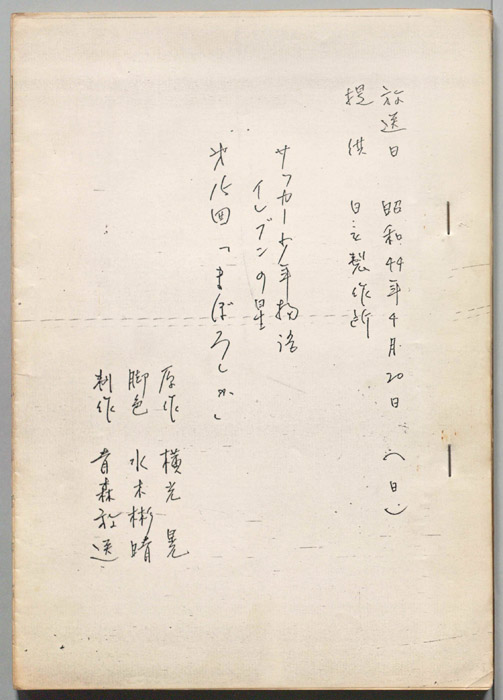 放送日 昭和44年4月20日 (日)
提供 日立製作所
サッカー少年物語
イレブンの星
第15回「まぼろしか」
原作 横光 晃
脚色 水木彬晴
制作 青森放送